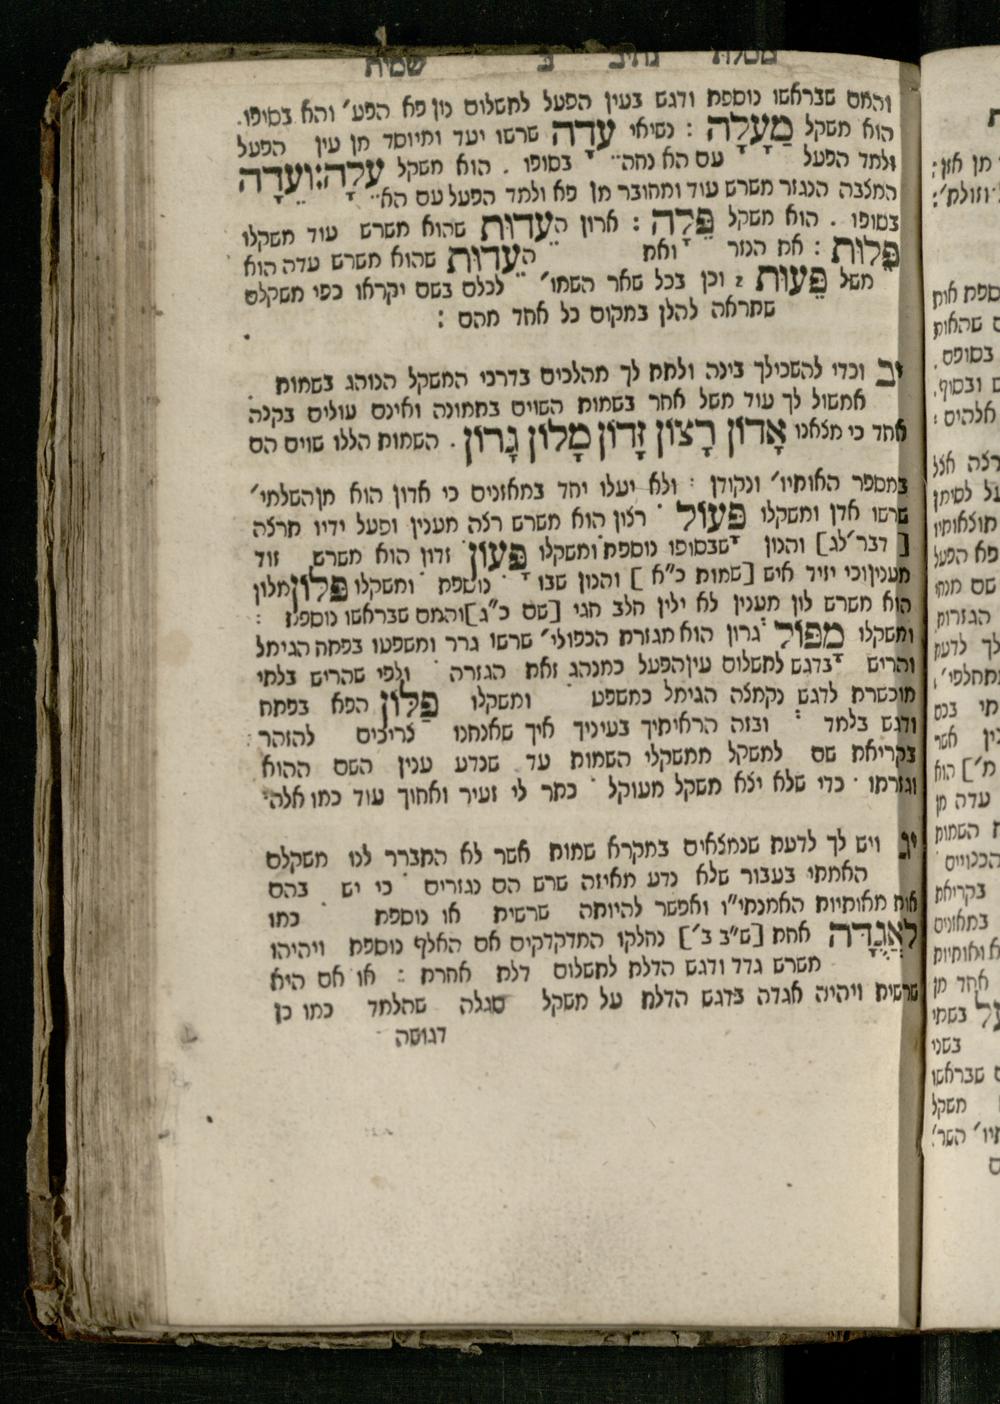 מסלות נתיב ב שמות
והמם שבראשו נוספת ודגש בעין הפעל לתשלום נון פא הפע' והא בסופו.
הוא משקל מַעָלָה : נשיאי עֵדָה שרשו יעד ומיוסד מן עין הפעל
ולמד הפעל עם הא נחה בסופו . הוא משקל עֵלָה : ועֵדָה
המצבה הנגזר משרש עוד ומחובר מן פא ולמד הפעל עם הא
בסופו . הוא משקל פֵּלָה : ארון הָעֵדוּת שהוא משרש עוד משקלו
פֵּלוּת : את הנזר ואת הָעֵדוּת שהוא משרש עדה הוא
משל פֵּעוּת : וכן בכל שאר השמו' לכלם בשם יקראו כפי משקלם
שתראה להלן במקום כל אחד מהם :
יב וכדי להשכילך בינה ולתת לך מהלכים בדרכי המשקל הנוהג בשמות
אמשול לך עוד משל אחר בשמות השוים בתמונה ואינם עולים בקנה
אחד כי מצאנו אָדוֹן רָצוֹן זָדוֹן מָלוֹן גָרוֹן . השמות הללו שוים הם
במספר האותיו' ונקודן : ולא יעלו יחד במאזנים כי אדון הוא מן השלמי'
שרשו אדן ומשקלו פָּעוֹל . רצון הוא משרש רצה מענין ופעל ידיו תרצה
[ דבר' לג] והנון שבסופו נוספת ומשקלו פָּעוֹן זדון הוא משרש זוד
מענין וכי יזיד איש [שמות כ"א ] והנון שבו נוספת ומשקלו פָּלוֹן מלון
הוא משרש לון מענין לא ילין חלב חגי [שם כ"ג] והמם שבראשו נוספת :
ומשקלו מָפּוֹל גרון הוא מגזרת הכפולי' שרשו גרר ומשפטו בפתח הגימל
והריש בדגש לתשלום עין הפעל כמנהג זאת הגזרה ולפי שהריש בלתי
מוכשרת לדגש נקמצה הגימל כמשפט ומשקלו פַּלּוֹן הפא בפתח
ודגש בלמד : ובזה הראיתיך בעיניך איך שאנחנו צריכים להזהר
בקריאת שם למשקל ממשקלי השמות עד שנדע ענין השם ההוא
וגזרתו . כדי שלא יצא משקל מעוקל . כתר לי זעיר ואחוך עוד כמו אלה
יג ויש לך לדעת שנמצאים במקרא שמות אשר לא התברר לנו משקלם
האמתי בעבור שלא נדע מאיזה שרש הם נגזרים . כי יש בהם
אות מאותיות האמנתי"ו ואפשר להיותה שרשית או נוספת כמו
לַאֲגֻדָּה אחת [ש"ב ב'] נחלקו המדקדקים אם האלף נוספת ויהיה
משרש גדד ודגש הדלת לתשלום דלת אחרת : או אם היא
שרשית ויהיה אגדה בדגש הדלת על משקל סגלה שהלמד כמו כן
דגושה